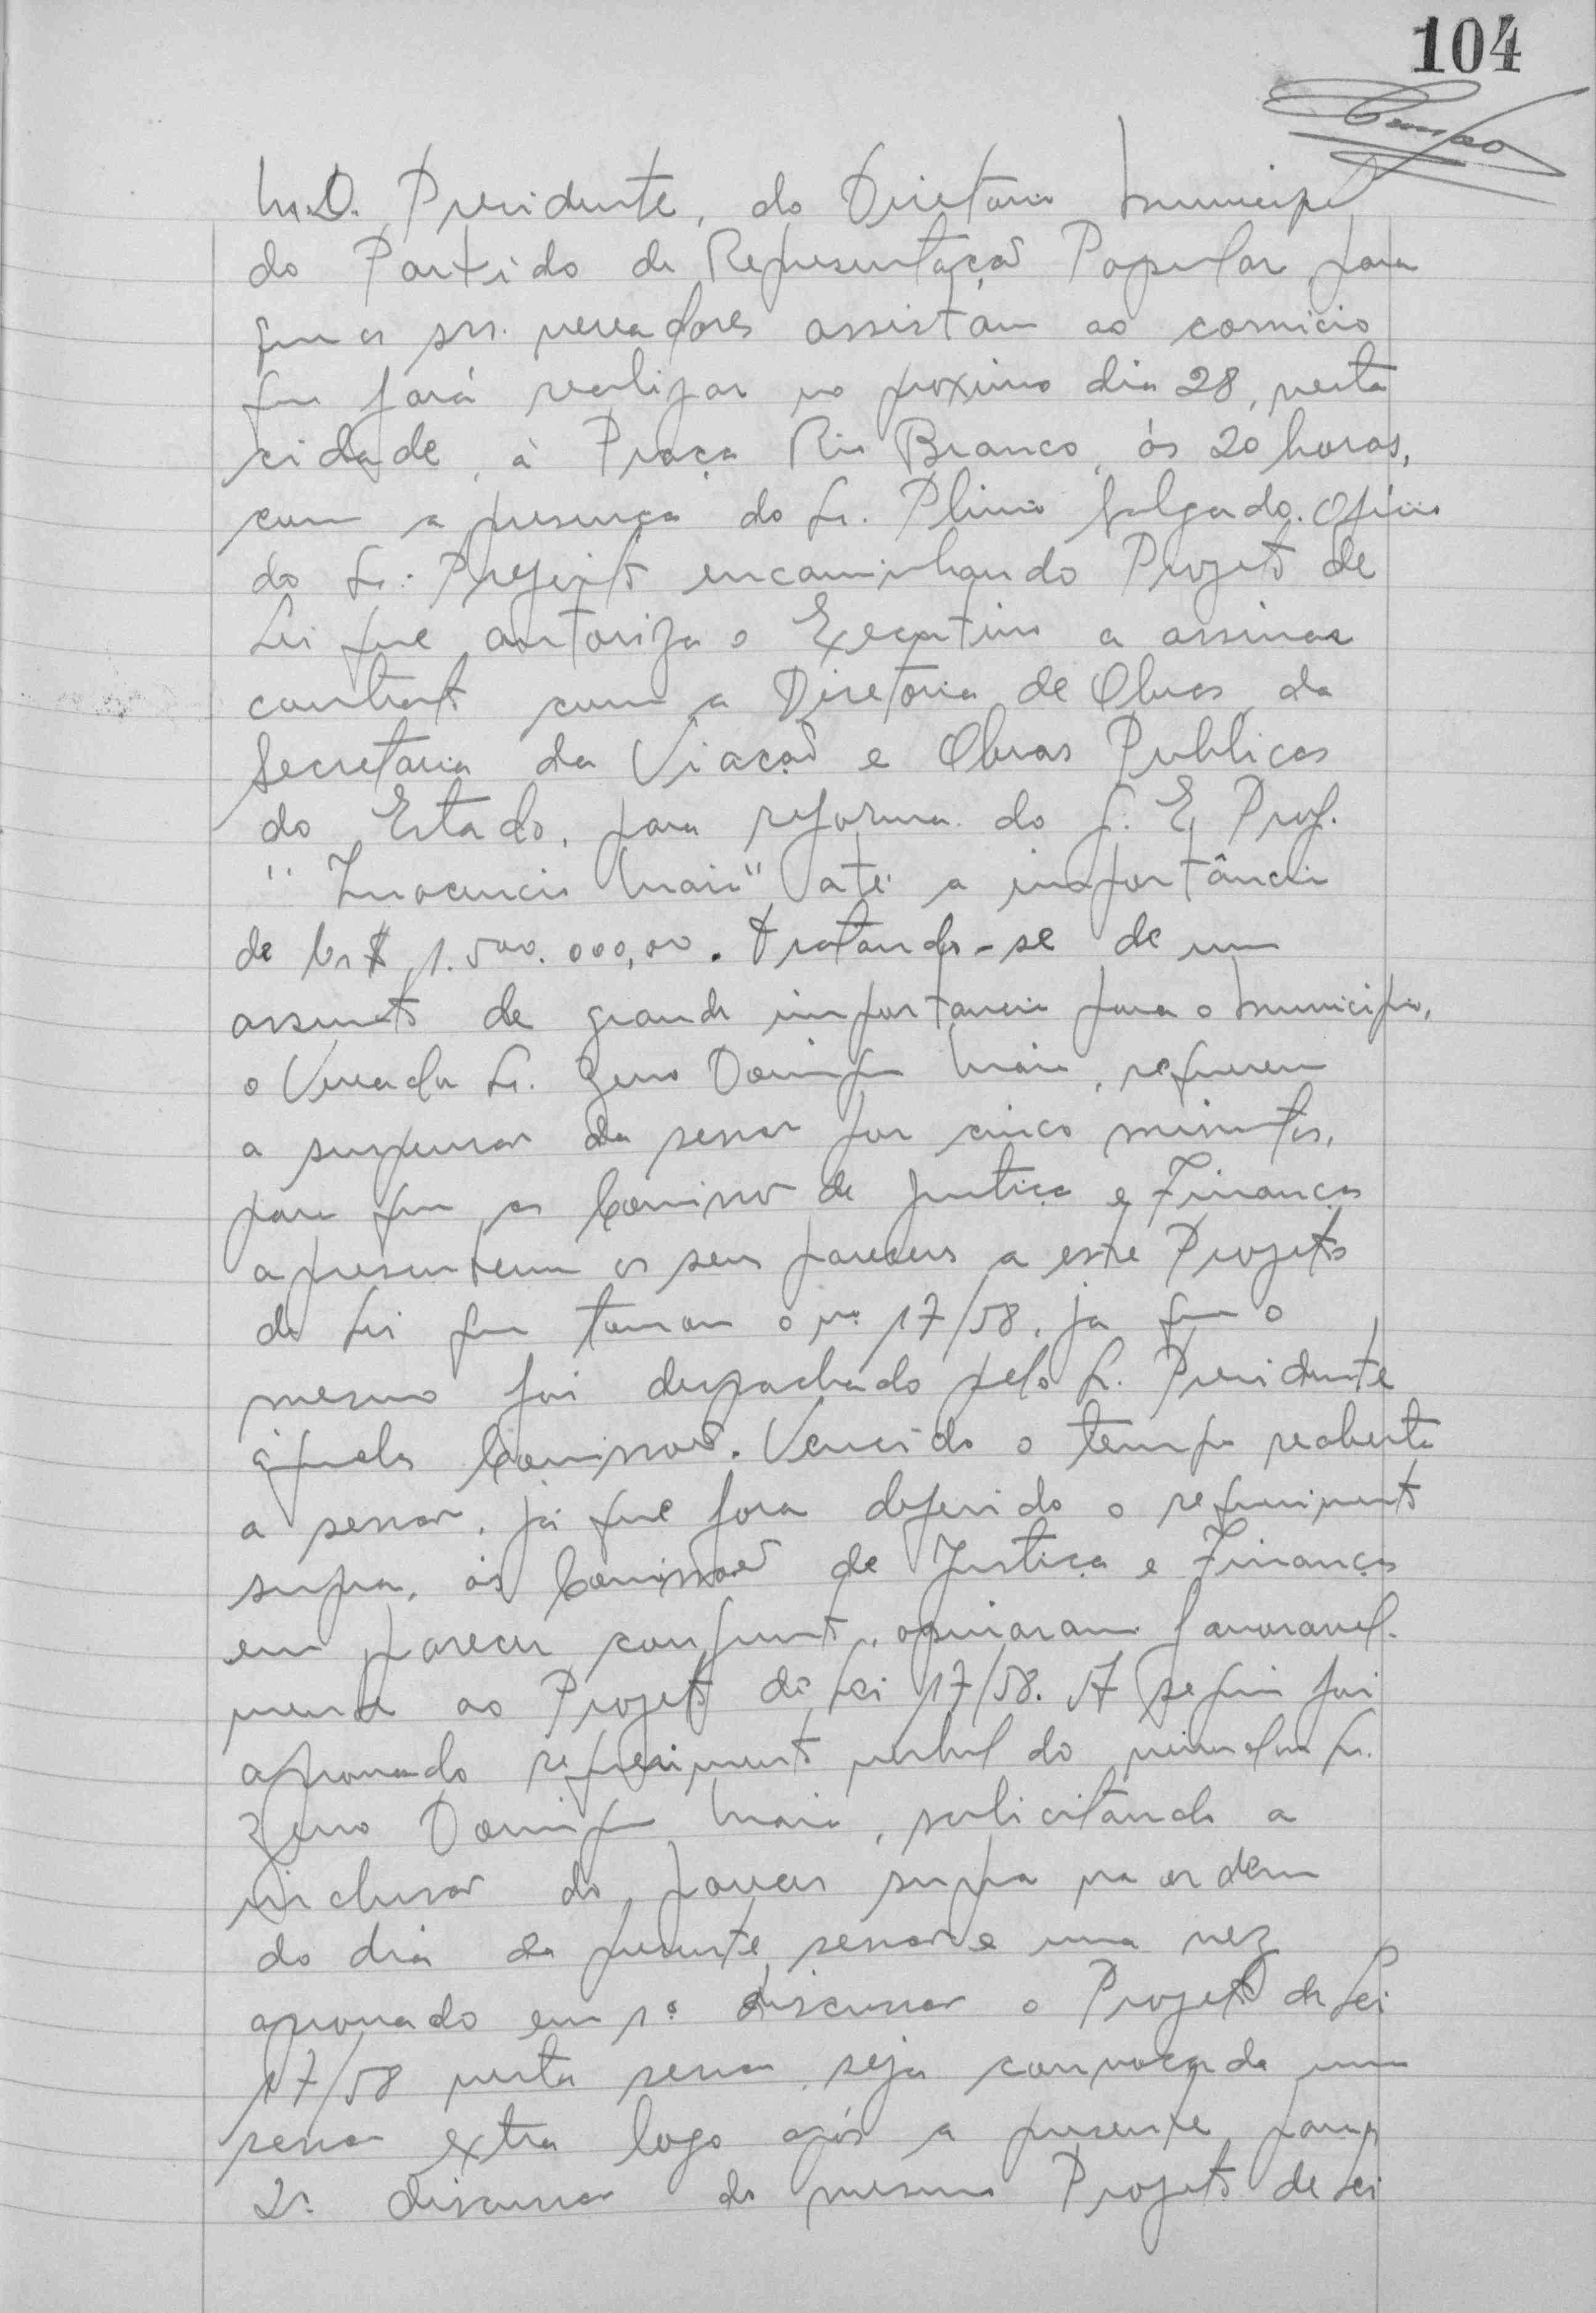 104
M.D. Presidente, do Diretorio Municipal
do Partido de Representação Popular, para
que os srs. vereadores assistam ao comicio
que fará realizar no proximo dia 28, nesta
cidade, à Praça Rio Branco, ás 20 horas,
com a presença do Sr. Plinio Salgado. Oficio
do Sr. Prefeito encaminhando Projeto de
Lei que autoriza o Executivo a assinar
contrato com a Diretoria de Obras, da
Secretaria da Viação e Obras Publicas
do Estado, para reforma do G. E. Prof.
"Inocencio Maia" até a importância
de Cr$ 1.500.000,00. Tratando-se de um
assunto de grande importancia para o Municipio,
o Vereador Sr. Zeno Domingues Maia, requereu
a suspensão da sessão por cinco minutos,
para que as Comissões de Justiça e Finanças
apresentem os seus pareceres a este Projeto
de Lei que tomou o nº 17/58, já que o
mesmo foi despachado pelo Sr. Presidente
àquelas Comissões. Vencido o tempo reaberta
a sessão, já que fora deferido o requerimento
supra, as Comissões de Justiça e Finanças
em parecer conjunto, opinaram favoravel-
mente ao Projeto de Lei 17/58. A seguir foi
aprovado requerimento verbal do vereador Sr.
Zeno Domingues Maia, solicitando a
inclusão do parecer supra na ordem
do dia da presente sessão e uma vez
aprovado em 1ª discussão o Projeto de Lei
17/58 nesta sessão, seja convocada uma
sessão extra logo após a presente para
2ª discussão do mesmo Projeto de Lei